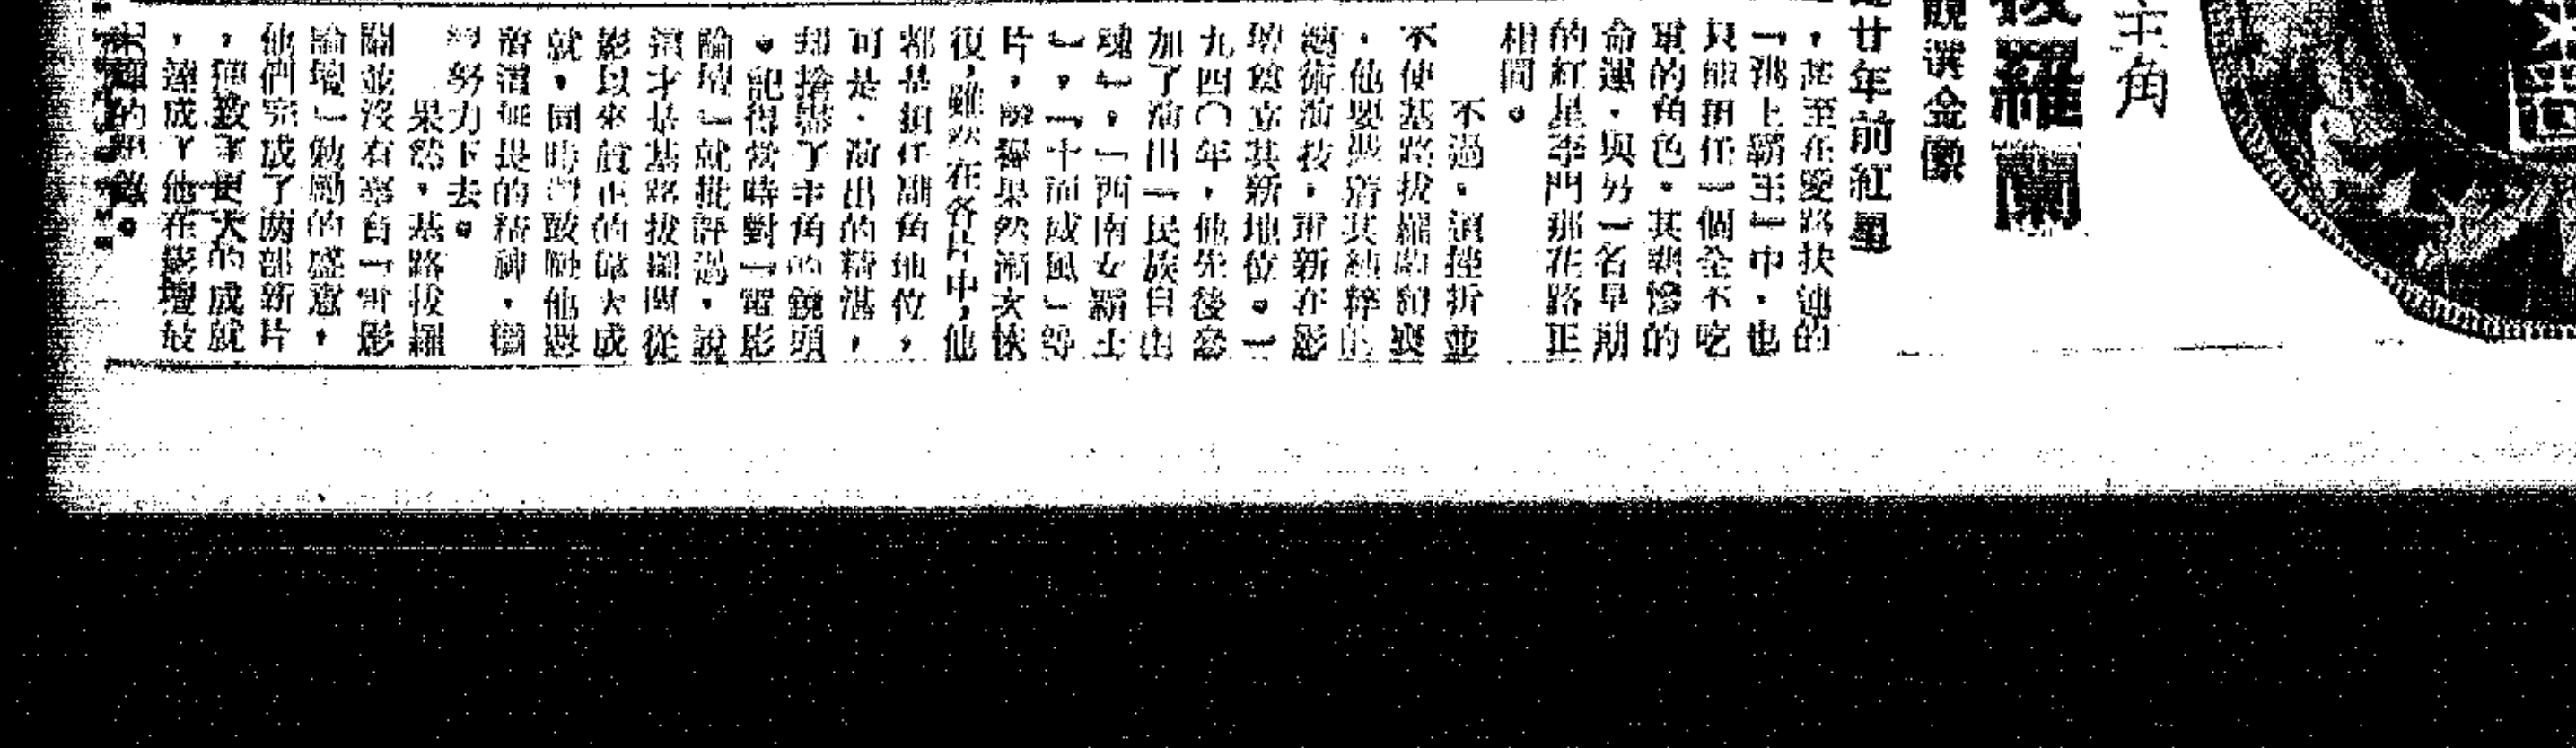 主角
羅蘭
選金像
廿年前紅星
，甚至在愛路扶連的
「海上霸王」中，也
只能担任一個全不吃
重的角色。其悲慘的
命運，與另一名早期
的紅星李門那花路正
相同。
不過，這挫折並
不使基路拔羅蘭有
，他要憑着其純粹的
藝術演技，重新在影
壇竪立其新地位。一
九四〇年，他先後參
加了演出「民族自由
魂」，「西南女霸士
」，「十面威風」等
片，聲譽果然漸次恢
復，雖然在各片中，他
都是担任副角地位，
可是，演出的精湛，
却搶盡了主角的鏡頭
。記得當時對「電影
論壇」就批評過，說
這才是基路拔羅蘭從
影以來眞正的偉大成
就，同時鼓勵他
這種無畏的精神，繼
續努力下去。
果然，基路拔羅
蘭並沒有辜負「電影
論壇」勉勵的盛意，
他們完成了兩部新片
，更大的成就
，達成了他在影壇最
光輝的